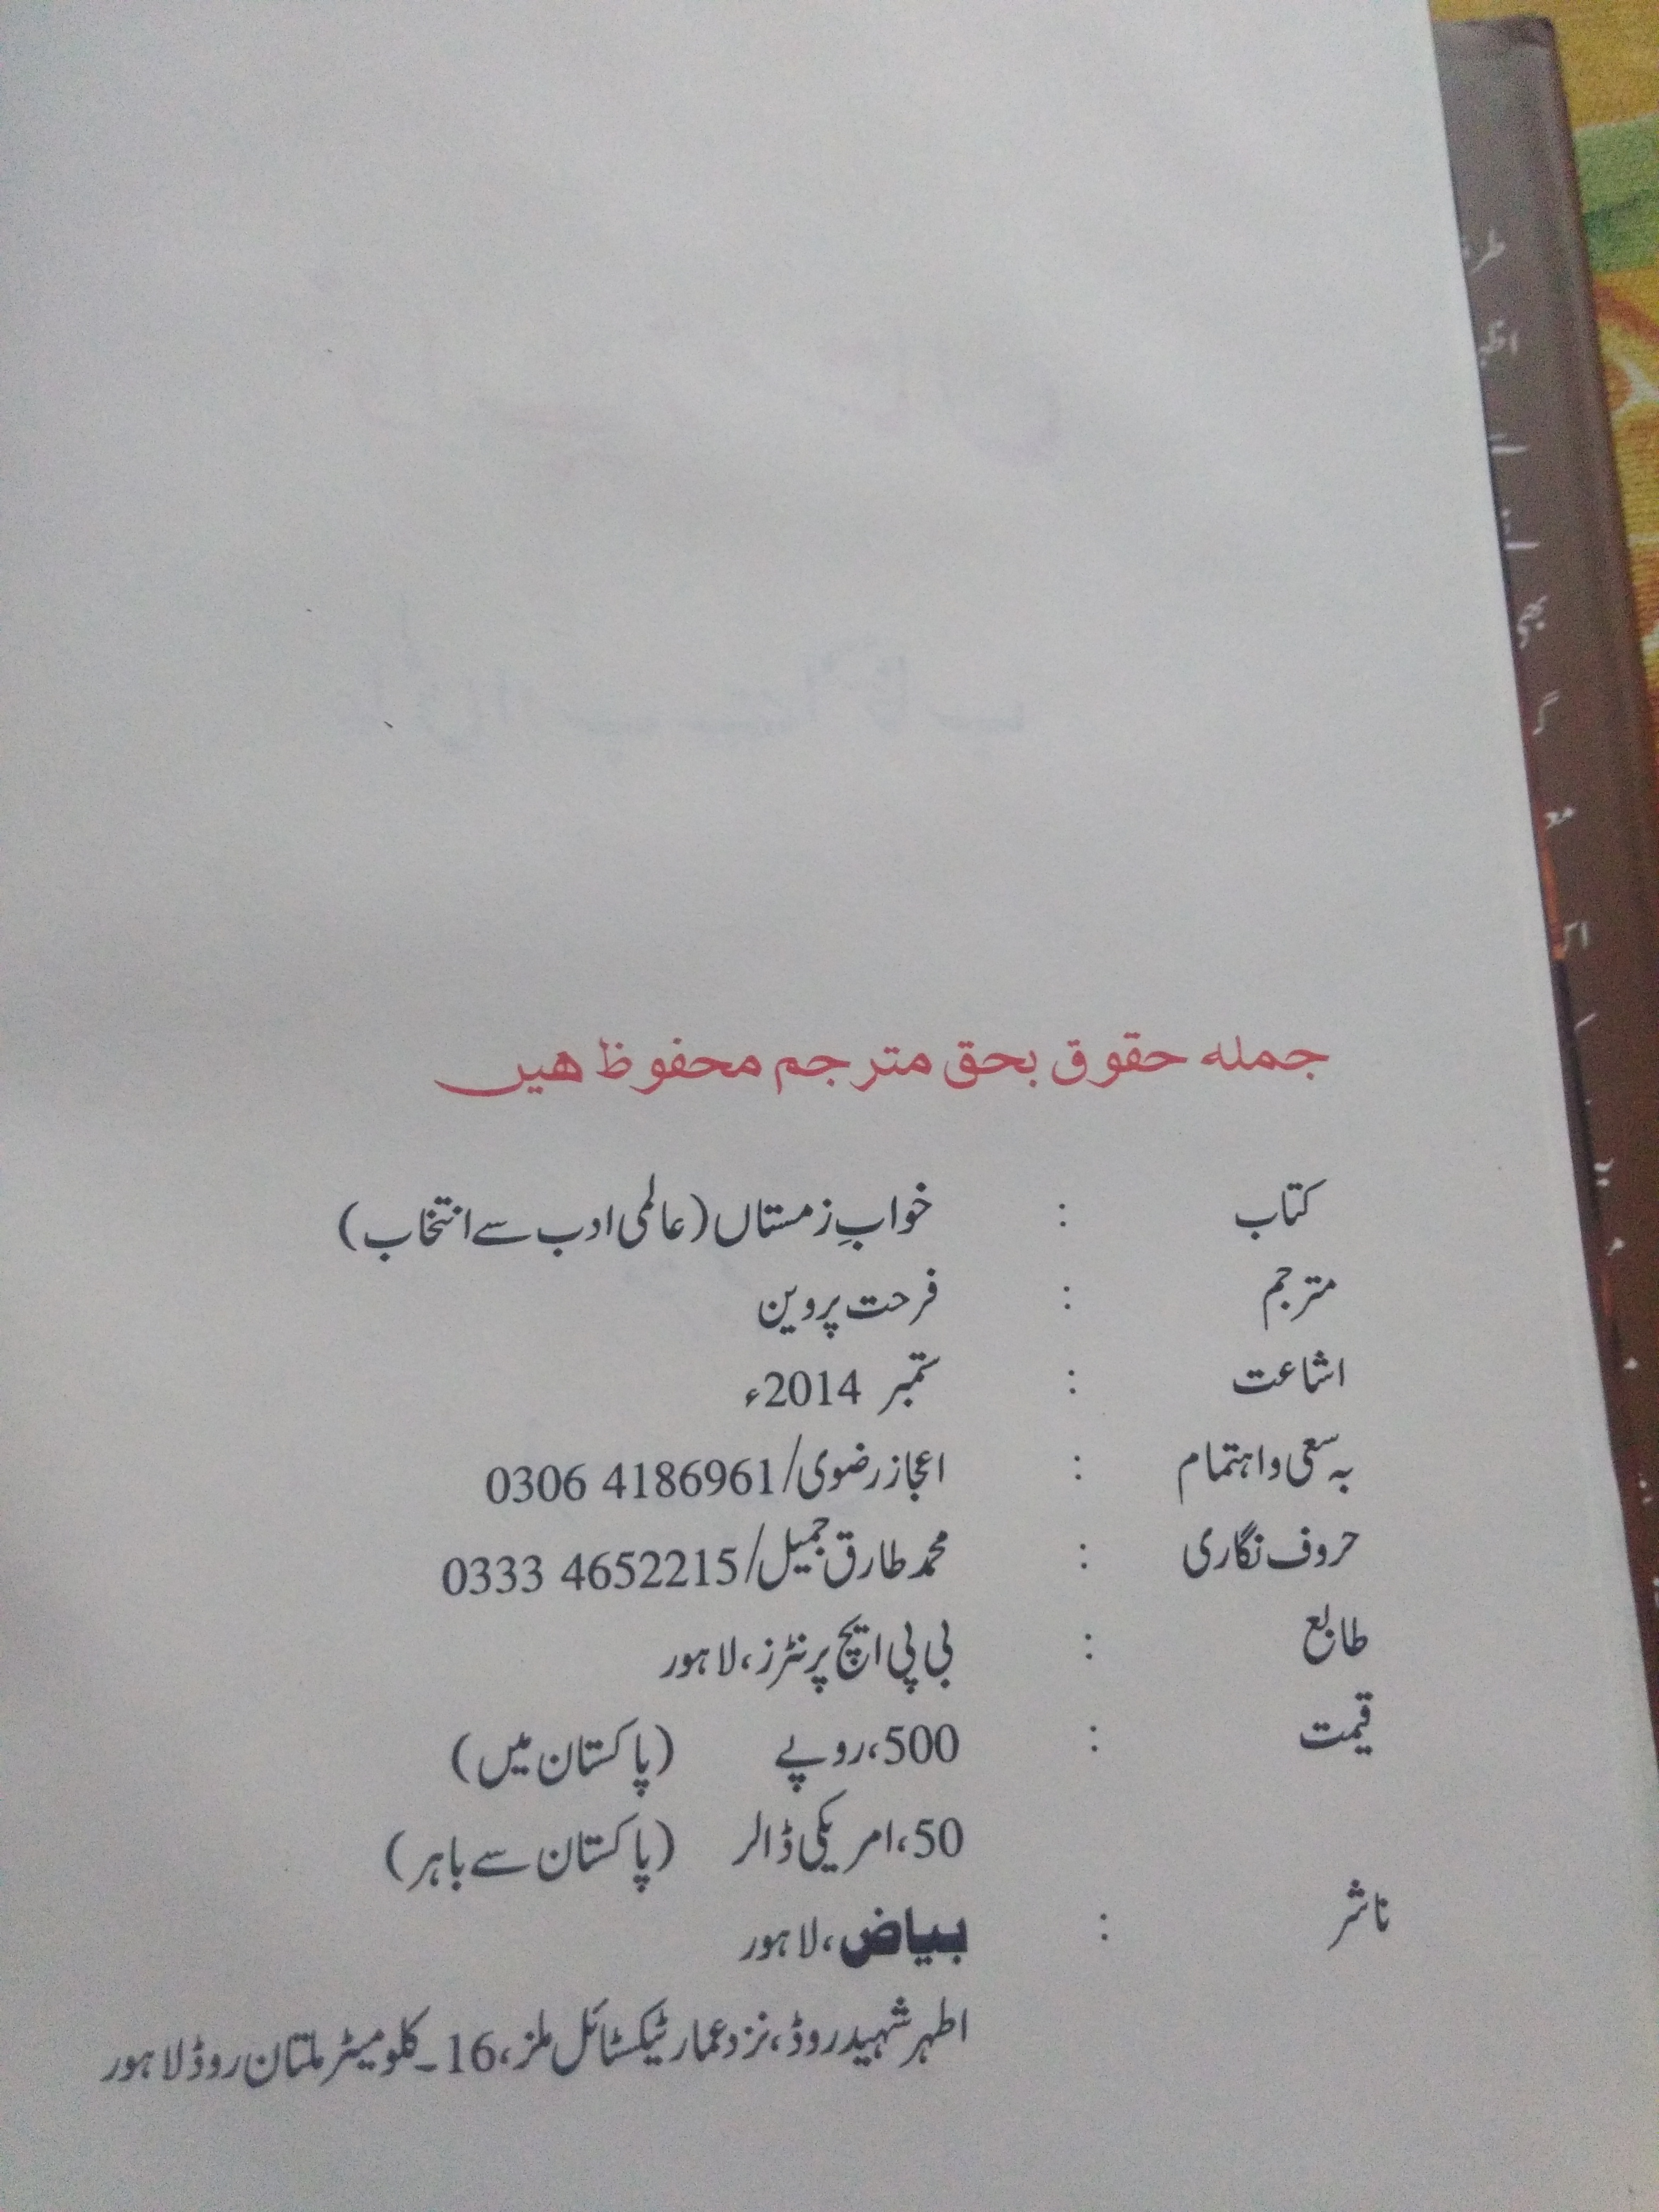 جملہ حقوق بحق مترجم محفوظ ہیں
کتاب : خوابِ زمستاں (عالمی ادب سے انتخاب)
مترجم : فرحت پروین
اشاعت : ستمبر 2014ء
بہ سعی و اہتمام : اعجاز رضوی/0306 4186961
حروف نگاری : محمد طارق جمیل/0333 4652215
طابع : بی پی ایچ پرنٹرز، لاہور
قیمت : 500، روپے (پاکستان میں)
50، امریکی ڈالر (پاکستان سے باہر)
ناشر : بیاض، لاہور
اطہر شہید روڈ، نزد عمار ٹیکسٹائل ملز، 16۔کلومیٹر ملتان روڈ لاہور